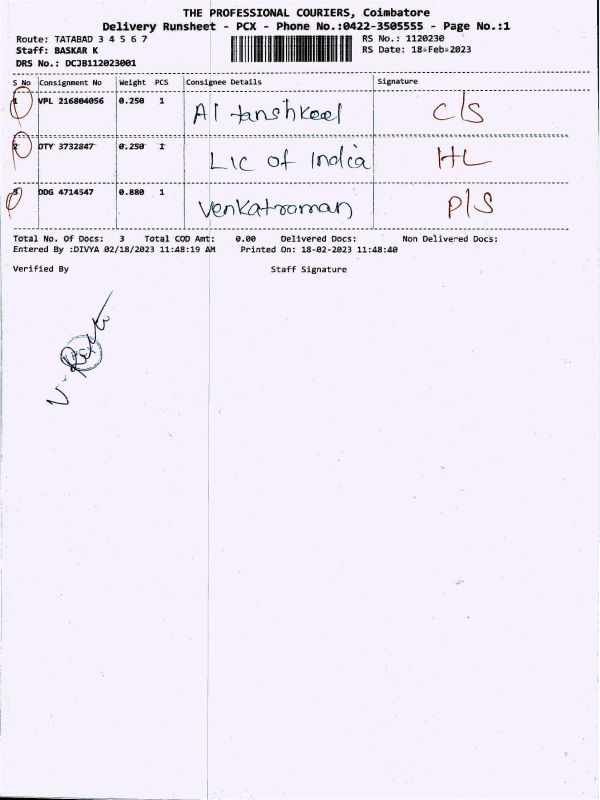 THE PROFESSIONAL COURIERS, Coimbatore
Delivery Runsheet - PCX - Phone No.:0422-3505555 - Page No.:1
Route: TATABAD 3 4 5 6 7 RS No.: 1120230
Staff: BASKAR K RS Date: 18-Feb-2023
DRS No.: DCJB112023001
S No Consignment No Weight PCS Consignee Details Signature
1 VPL 216804056 0.250 1 Al tanshkeel C/S
2 DTY 3732847 0.250 1 LIC of India HL
3 DDG 4714547 0.880 1 Venkatraman P/S
Total No. Of Docs: 3 Total COD Amt: 0.00 Delivered Docs: Non Delivered Docs:
Entered By :DIVYA 02/18/2023 11:48:19 AM Printed On: 18-02-2023 11:48:40
Verified By Staff Signature